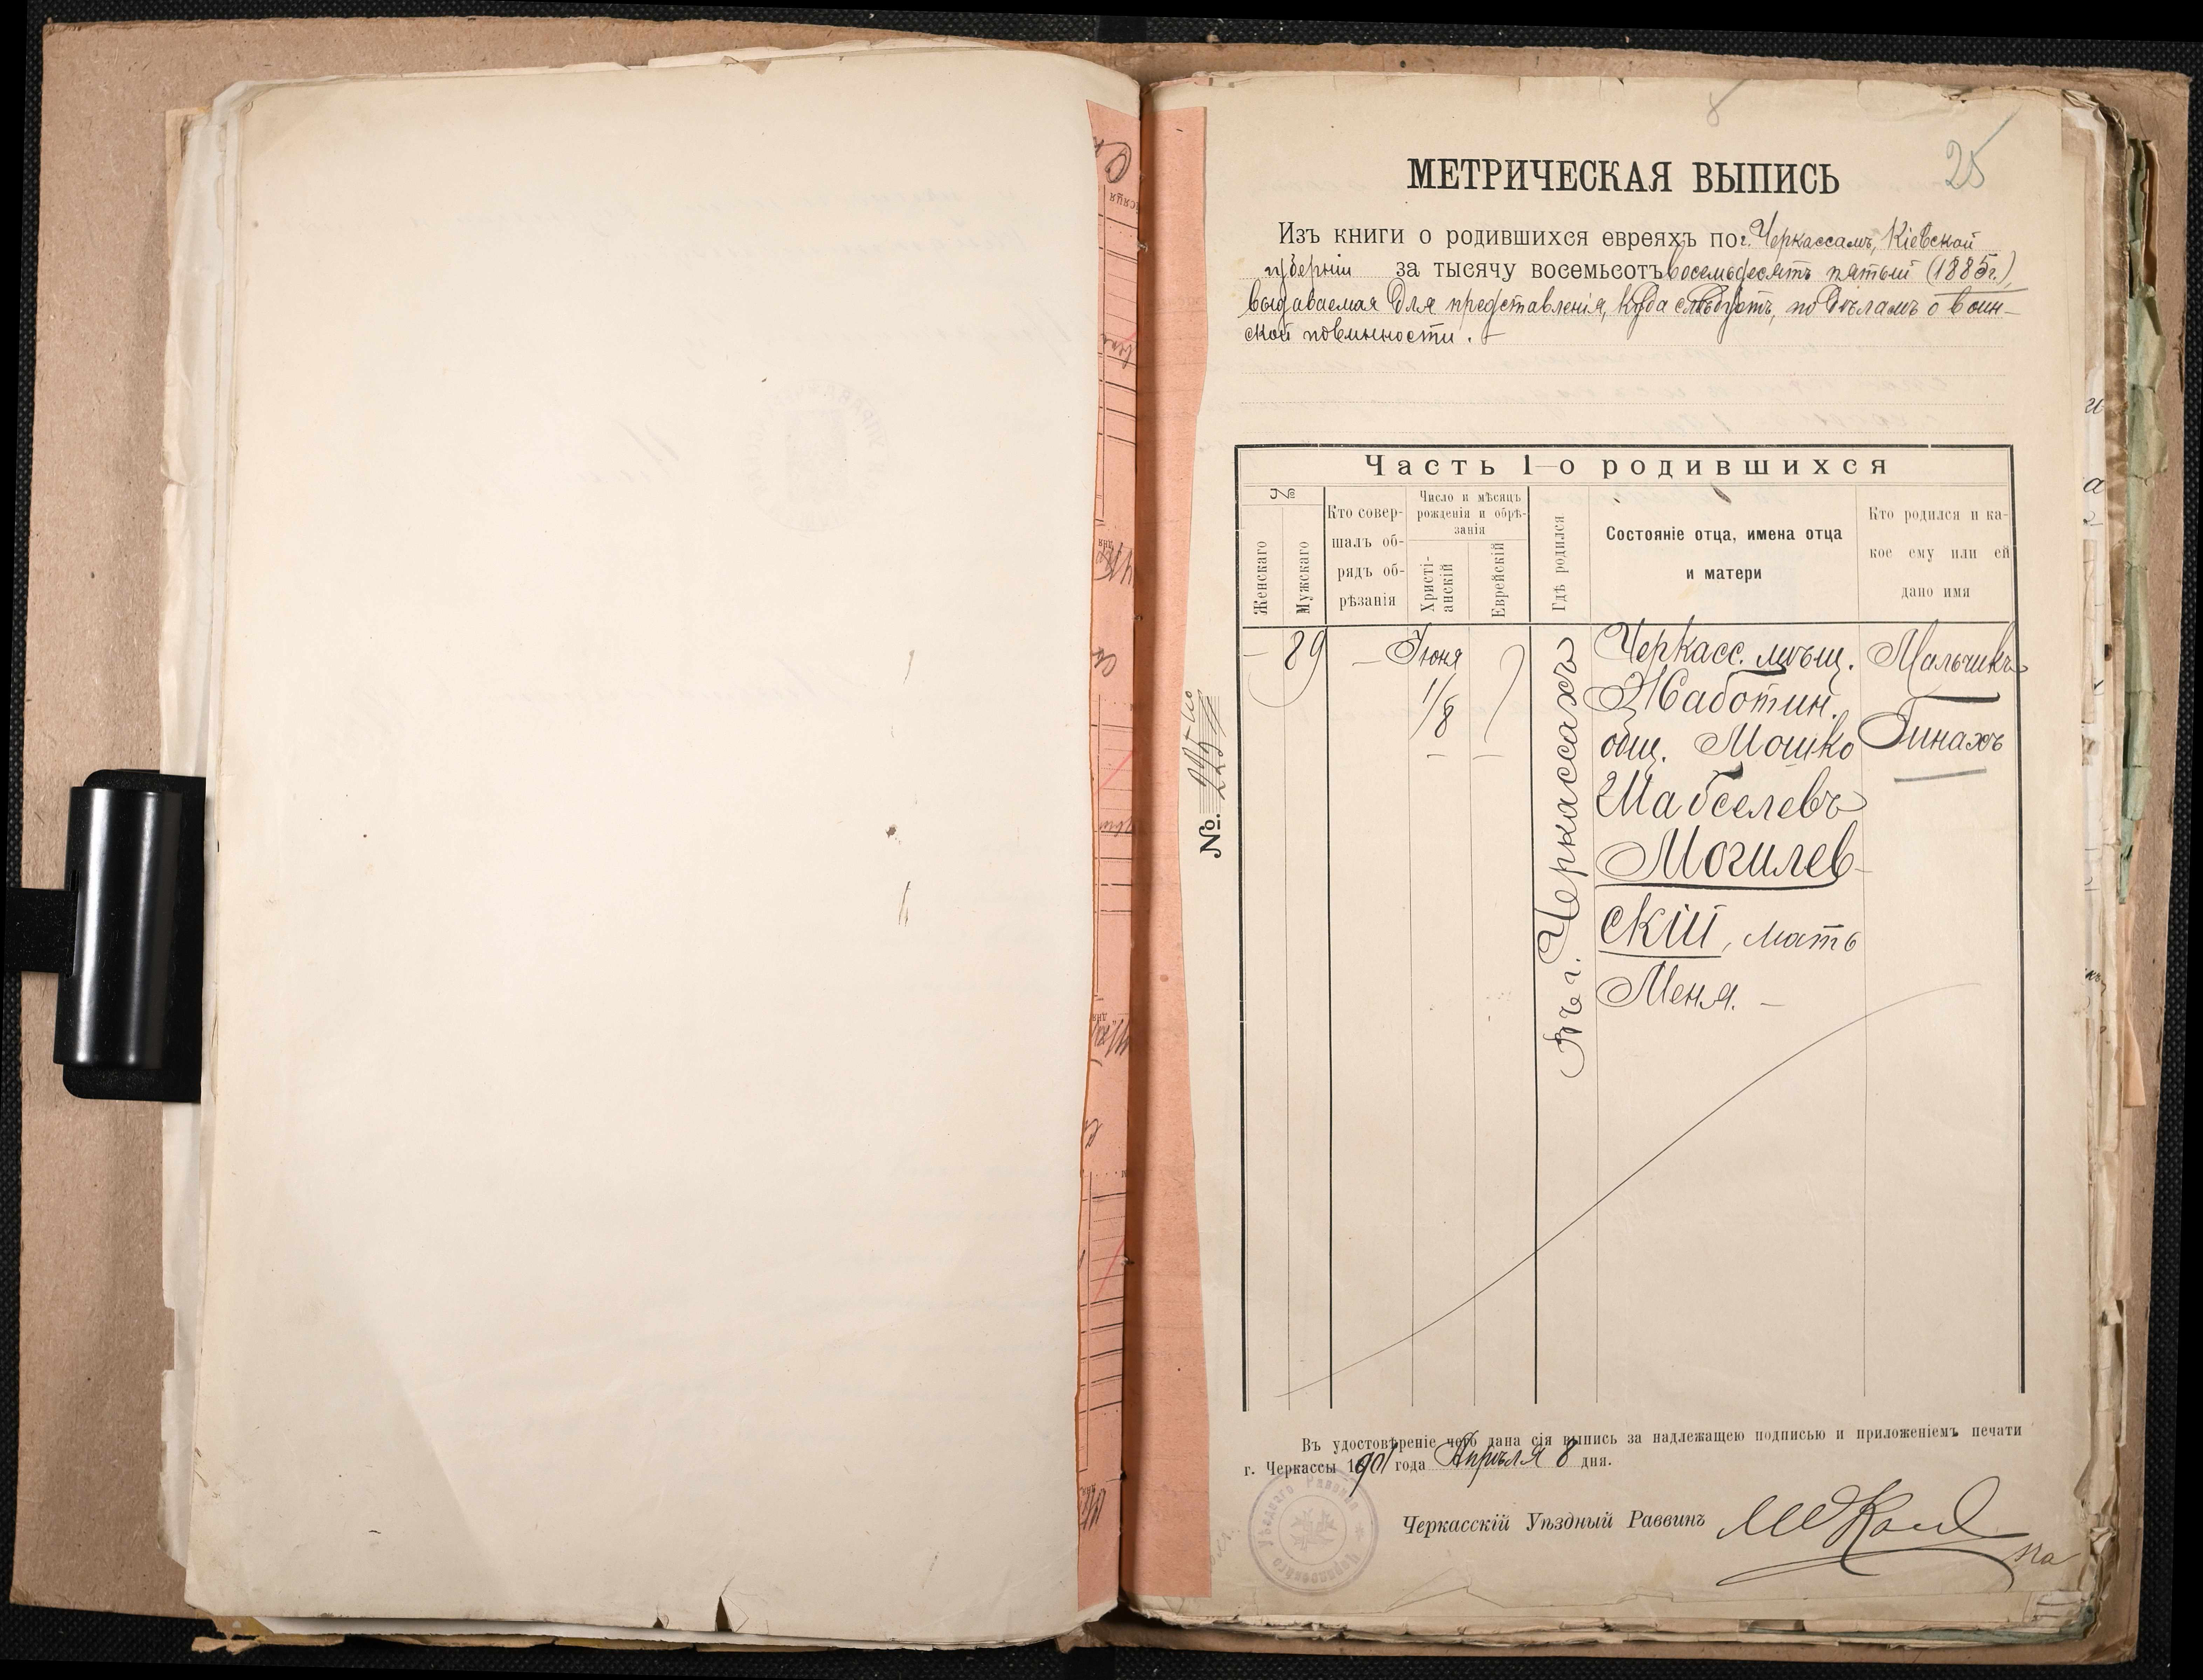 25
МЕТРИЧЕСКАЯ ВЫПИСЬ
Изъ книги о родившихся евреяхъ по г. Черкассамъ, Кіевской
губерніи за тысячу восемьсотъ восемьдесятъ пятый (1885 г.),
выдаваемая для представленія, куда слѣдуетъ, по дѣламъ о воин-
ской повинности.
Часть 1-о родившихся
№
Женскаго
Мужскаго
Кто совер-
шалъ об-
рядъ об-
рѣзанія
Число и мѣсяцъ
рожденія и обрѣ-
занія
Христі-
анскій
Еврейскій
Гдѣ родился
Состояніе отца, имена отца
и матери
Кто родился и ка-
кое ему или ей
дано имя
— 89
—
Іюня
1/8
—
—
Въ г. Черкассахъ
Черкасс. мѣщ.
Жаботин.
общ. Мошко
Шабселевъ
Могилев-
скій, мать
Меня. —
Мальчикъ
Пинахъ
№. 225
Въ удостовѣреніе чего дана сія выпись за надлежащею подписью и приложеніемъ печати
г. Черкассы 1901 года Апрѣля 8 дня.
Черкасскій Уѣздный Раввинъ